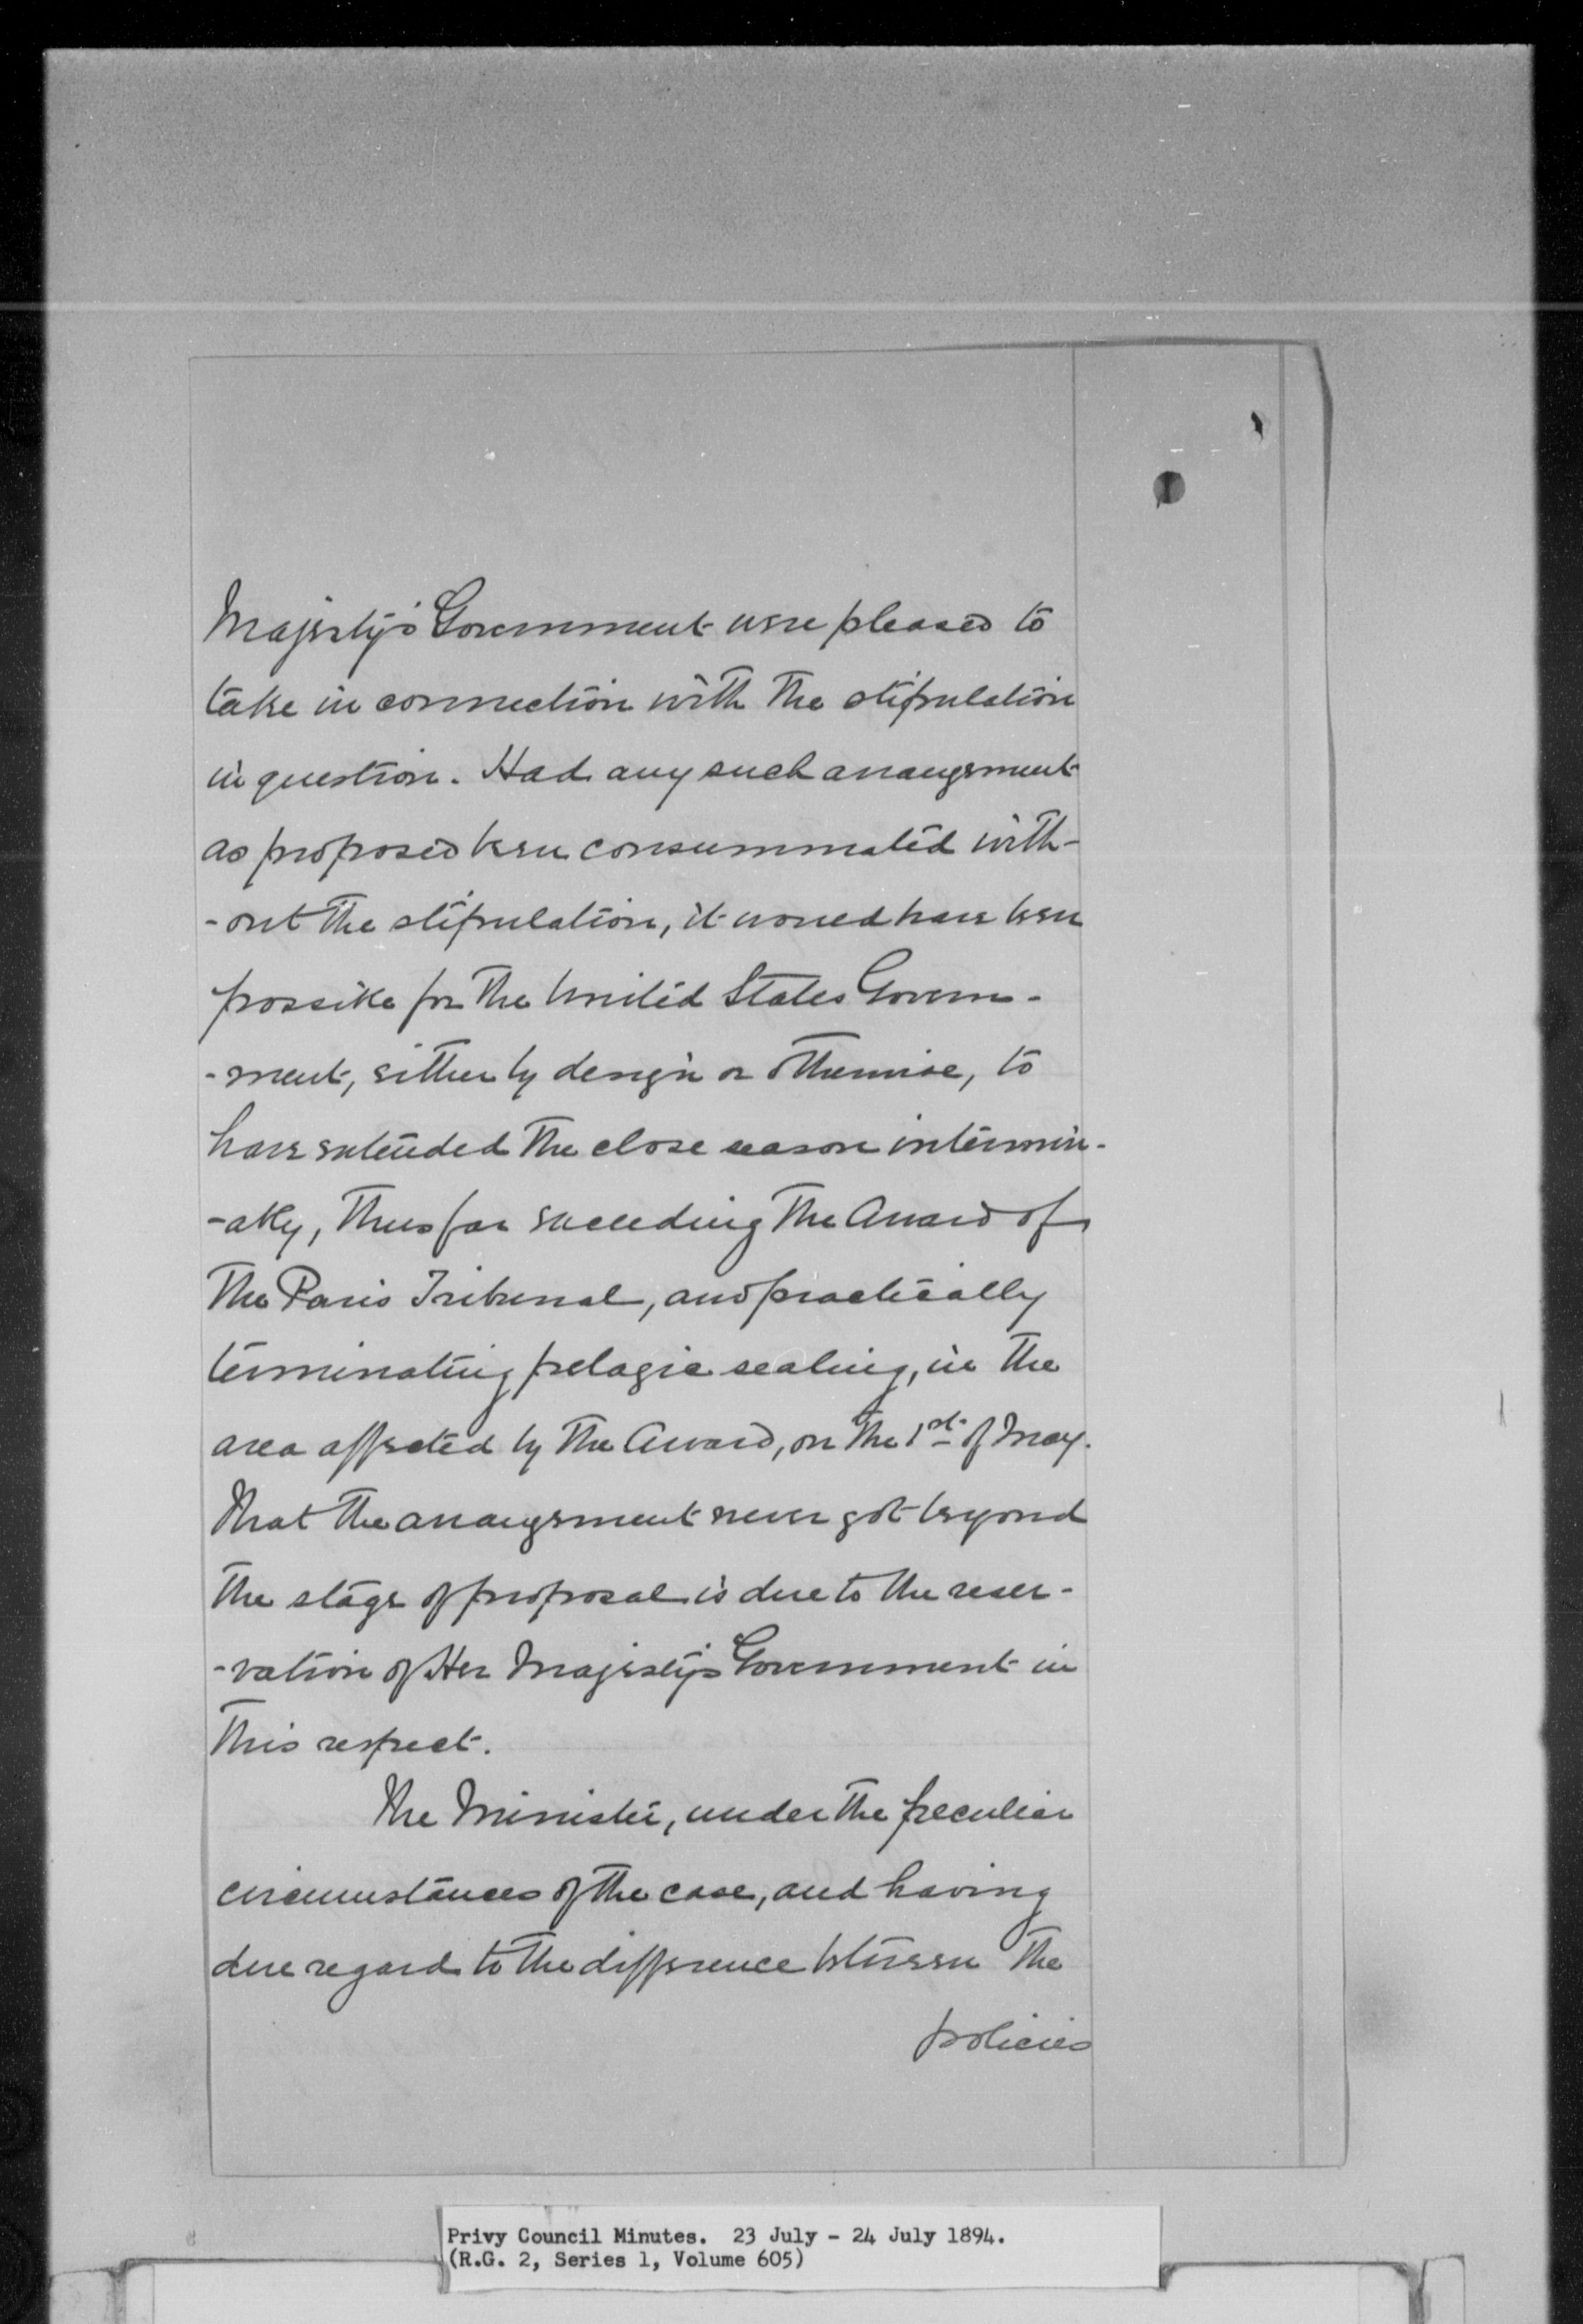 Majesty's Government were pleased to
take in connection with the stipulation
in question. Had any such arrangement
as proposed been consummated with-
-out the stipulation, it would have been
possible for the United States Govern-
-ment, either by design or otherwise, to
have extended the close season intermin-
-ably, thus far exceeding the Award of
the Paris Tribunal, and practically
terminating pelagic sealing, in the
area affected by the Award, on the 1st of May.
That the arrangement never got beyond
the stage of proposal is due to the reser-
-vation of Her Majesty's Government in
this respect.
The Minister, under the peculiar
circumstances of the case, and having
due regard to the difference between the
policies
Privy Council Minutes. 23 July - 24 July 1894.
(R.G. 2, Series 1, Volume 605)